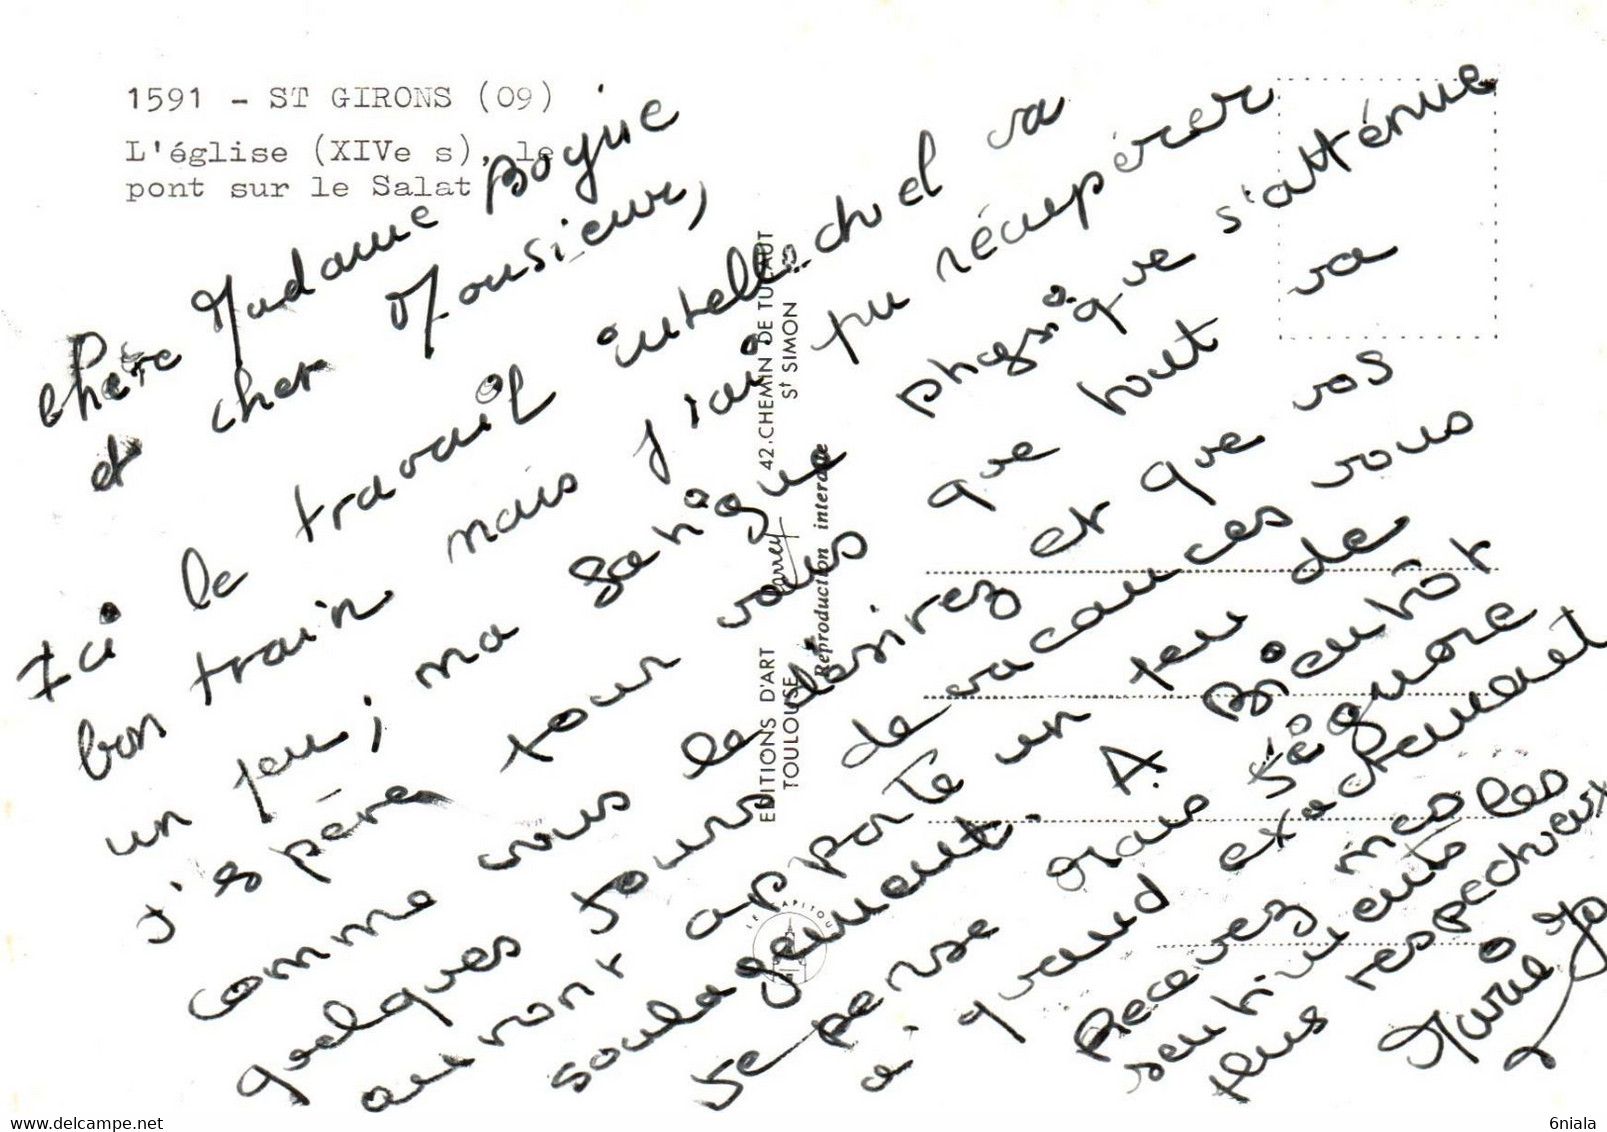 1591 - ST GIRONS (09)
L'église (XIVe s), le
pont sur le Salat
Chère Madame Boyrie
et cher Monsieur,
Ici le travail intellectuel va
bon train mais j'ai pu récupérer
un peu; ma fatigue physique s'atténue
J'espère pour vous que tout va
comme vous le désirez et que vos
quelques jours de vacances vous
auront apporté un peu de
soulagement. A Bientôt
Je pense mais j'ignore
à quand exactement
Recevez mes
sentiments les
plus respectueux
Marie Jo
EDITIONS D'ART Larrey 42.CHEMIN DE TUCAUT
TOULOUSE St SIMON
Reproduction interdite
LE CAPITOU
6niala